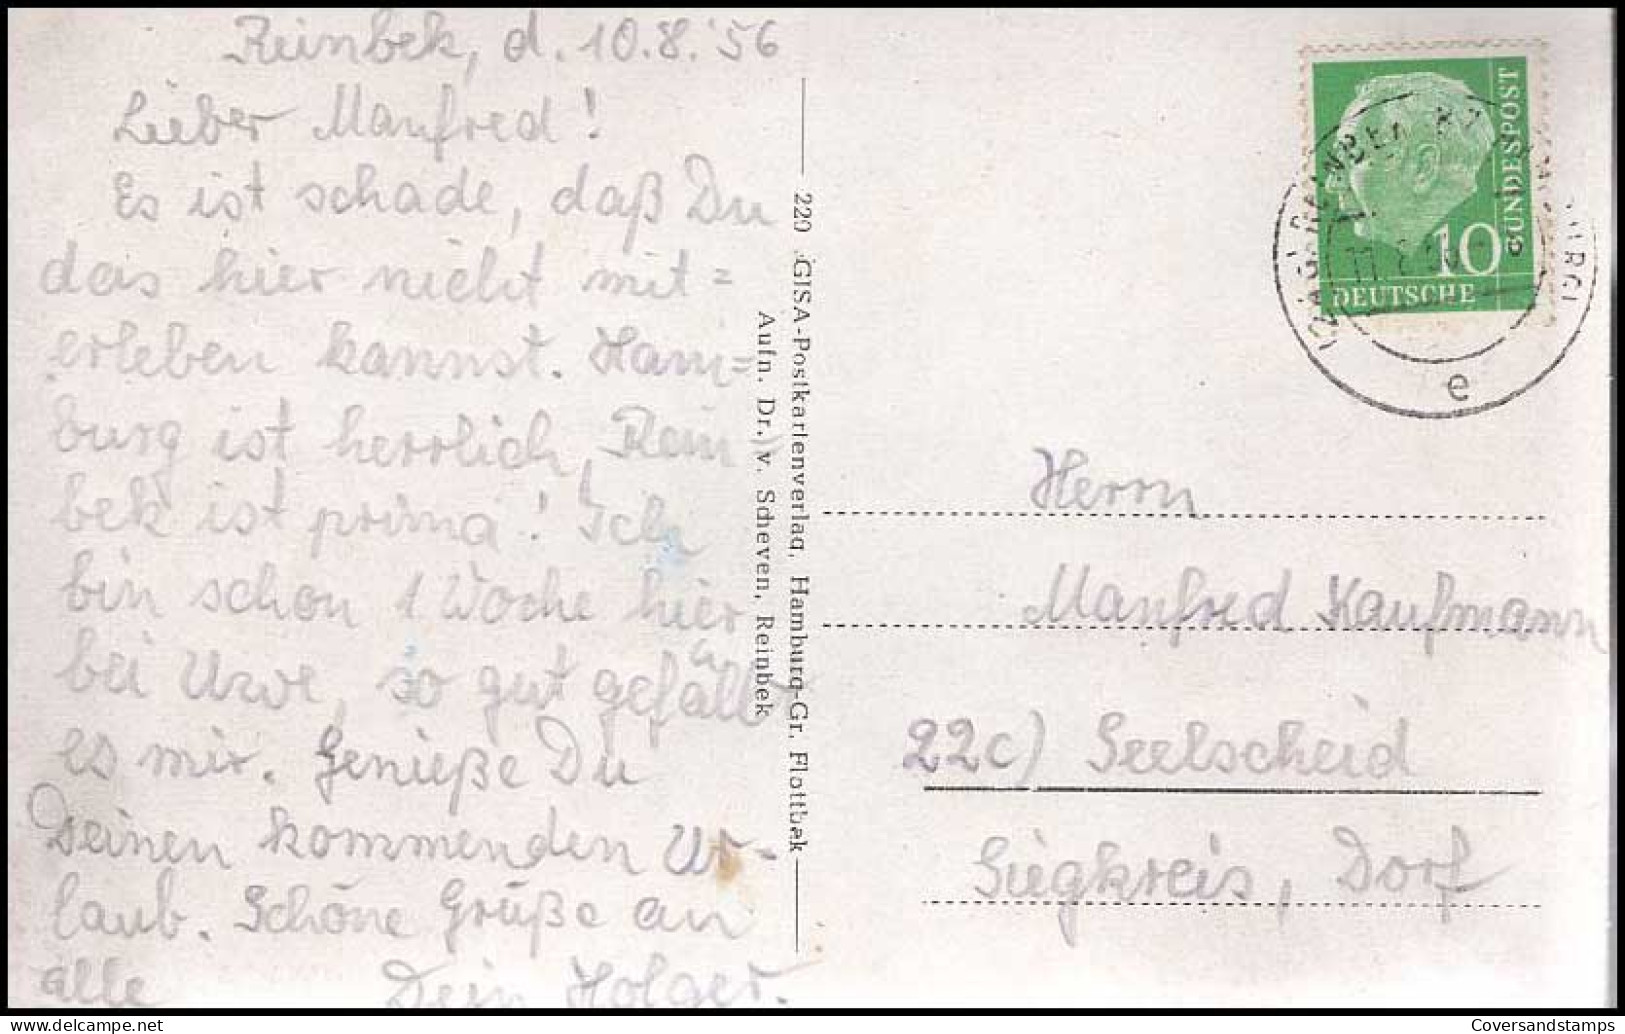 Reinbek, d. 10.8.'56
Lieber Manfred!
Es ist schade, daß Du
das hier nicht mit=
erleben kannst. Ham=
burg ist herrlich, Rein
bek ist prima! Ich
bin schon 1 Woche hier
bei Uwe, so gut gefällt
es mir. Genieße Du
Deinen kommenden Ur-
laub. Schöne Grüße an
alle Dein Holger.
220 GISA-Postkartenverlag, Hamburg-Gr. Flottbek
Aufn. Dr. v. Scheven, Reinbek
DEUTSCHE
BUNDESPOST
10
e
Herrn
Manfred Kaufmann
22c) Seelscheid
Siegkreis, Dorf
Coversandstamps